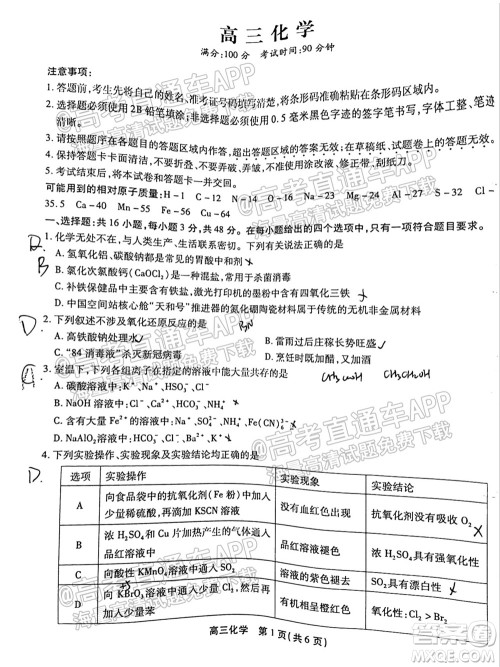 高三化学
满分:100分 考试时间:90分钟
注意事项:
1. 答题前,考生先将自己的姓名、准考证号码填写清楚,将条形码准确粘贴在条形码区域内。
2. 选择题必须使用2B铅笔填涂;非选择题必须使用0.5毫米黑色字迹的签字笔书写,字体工整、笔迹
清晰。
3. 请按照题号顺序在各题目的答题区域内作答,超出答题区域书写的答案无效;在草稿纸、试题卷上答题无效。
4. 保持答题卡卡面清洁,不要折叠、不要弄破、弄皱,不准使用涂改液、修正带、刮纸刀。
5. 考试结束后,将本试卷和答题卡一并交回。
可能用到的相对原子质量:H-1 C-12 N-14 O-16 Na-23 Mg-24 Al-27 S-32 Cl-
35.5 Ca-40 Mn-55 Fe-56 Cu-64
一、选择题:共16小题,每小题3分,共48分。在每小题给出的四个选项中,只有一项符合题目要求。
1. 化学无处不在,与人类生产、生活联系密切。下列有关说法正确的是
A. 氢氧化铝、碳酸钠都是常用的胃酸中和剂
B. 氯化次氯酸钙(CaOCl₂)是一种混盐,常用于杀菌消毒
C. 补铁保健品中含有亚铁盐,激光打印机的墨粉中含有四氧化三铁
D. 中国空间站核心舱“天和号”推进器的氮化硼陶瓷基复合材料属于传统的无机非金属材料
D. 2. 下列叙述不涉及氧化还原反应的是
A. 高铁酸钠处理水
B. 雷雨过后庄稼长势旺盛
C. “84消毒液”杀灭新冠病毒
D. 烹饪时既加醋,又加酒
3. 室温下,下列各组离子在指定的溶液中能大量共存的是
A. 碳酸溶液中:K⁺、Na⁺、HSO₃⁻、Cl⁻
CH₃CH₂OH
B. NaOH溶液中:K⁺、Na⁺、HCO₃⁻、NH₄⁺
D. NaAlO₂溶液中:K⁺、Na⁺、HCO₃⁻、NH₄⁺
4. 下列实验操作、实验现象及实验结论均正确的是
D.
选项 实验操作 实验现象 实验结论
A 向食品袋中的抗氧化剂(Fe粉)中加入少量稀硫酸,再滴加KSCN溶液 没有血红色出现 抗氧化剂没有吸收O₂
B 浓H₂SO₄和Cu片加热产生的气体通入品红溶液中 品红溶液褪色 浓H₂SO₄具有强氧化性
C 向酸性KMnO₄溶液中通入SO₂ 溶液的紫色褪去 SO₂具有漂白性
D 向KBrO₃溶液中通入少量Cl₂,然后再加入少量苯 有机相呈橙红色 氧化性:Cl₂>Br₂
高三化学 第1页(共6页)